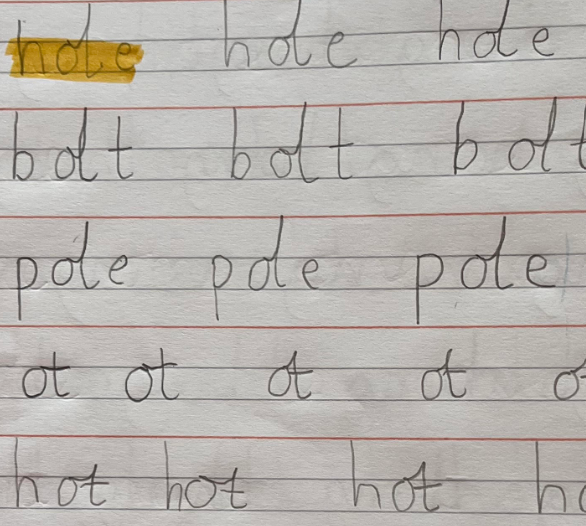 hole hole hole
bolt bolt bolt
pole pole pole
ot ot ot ot
hot hot hot